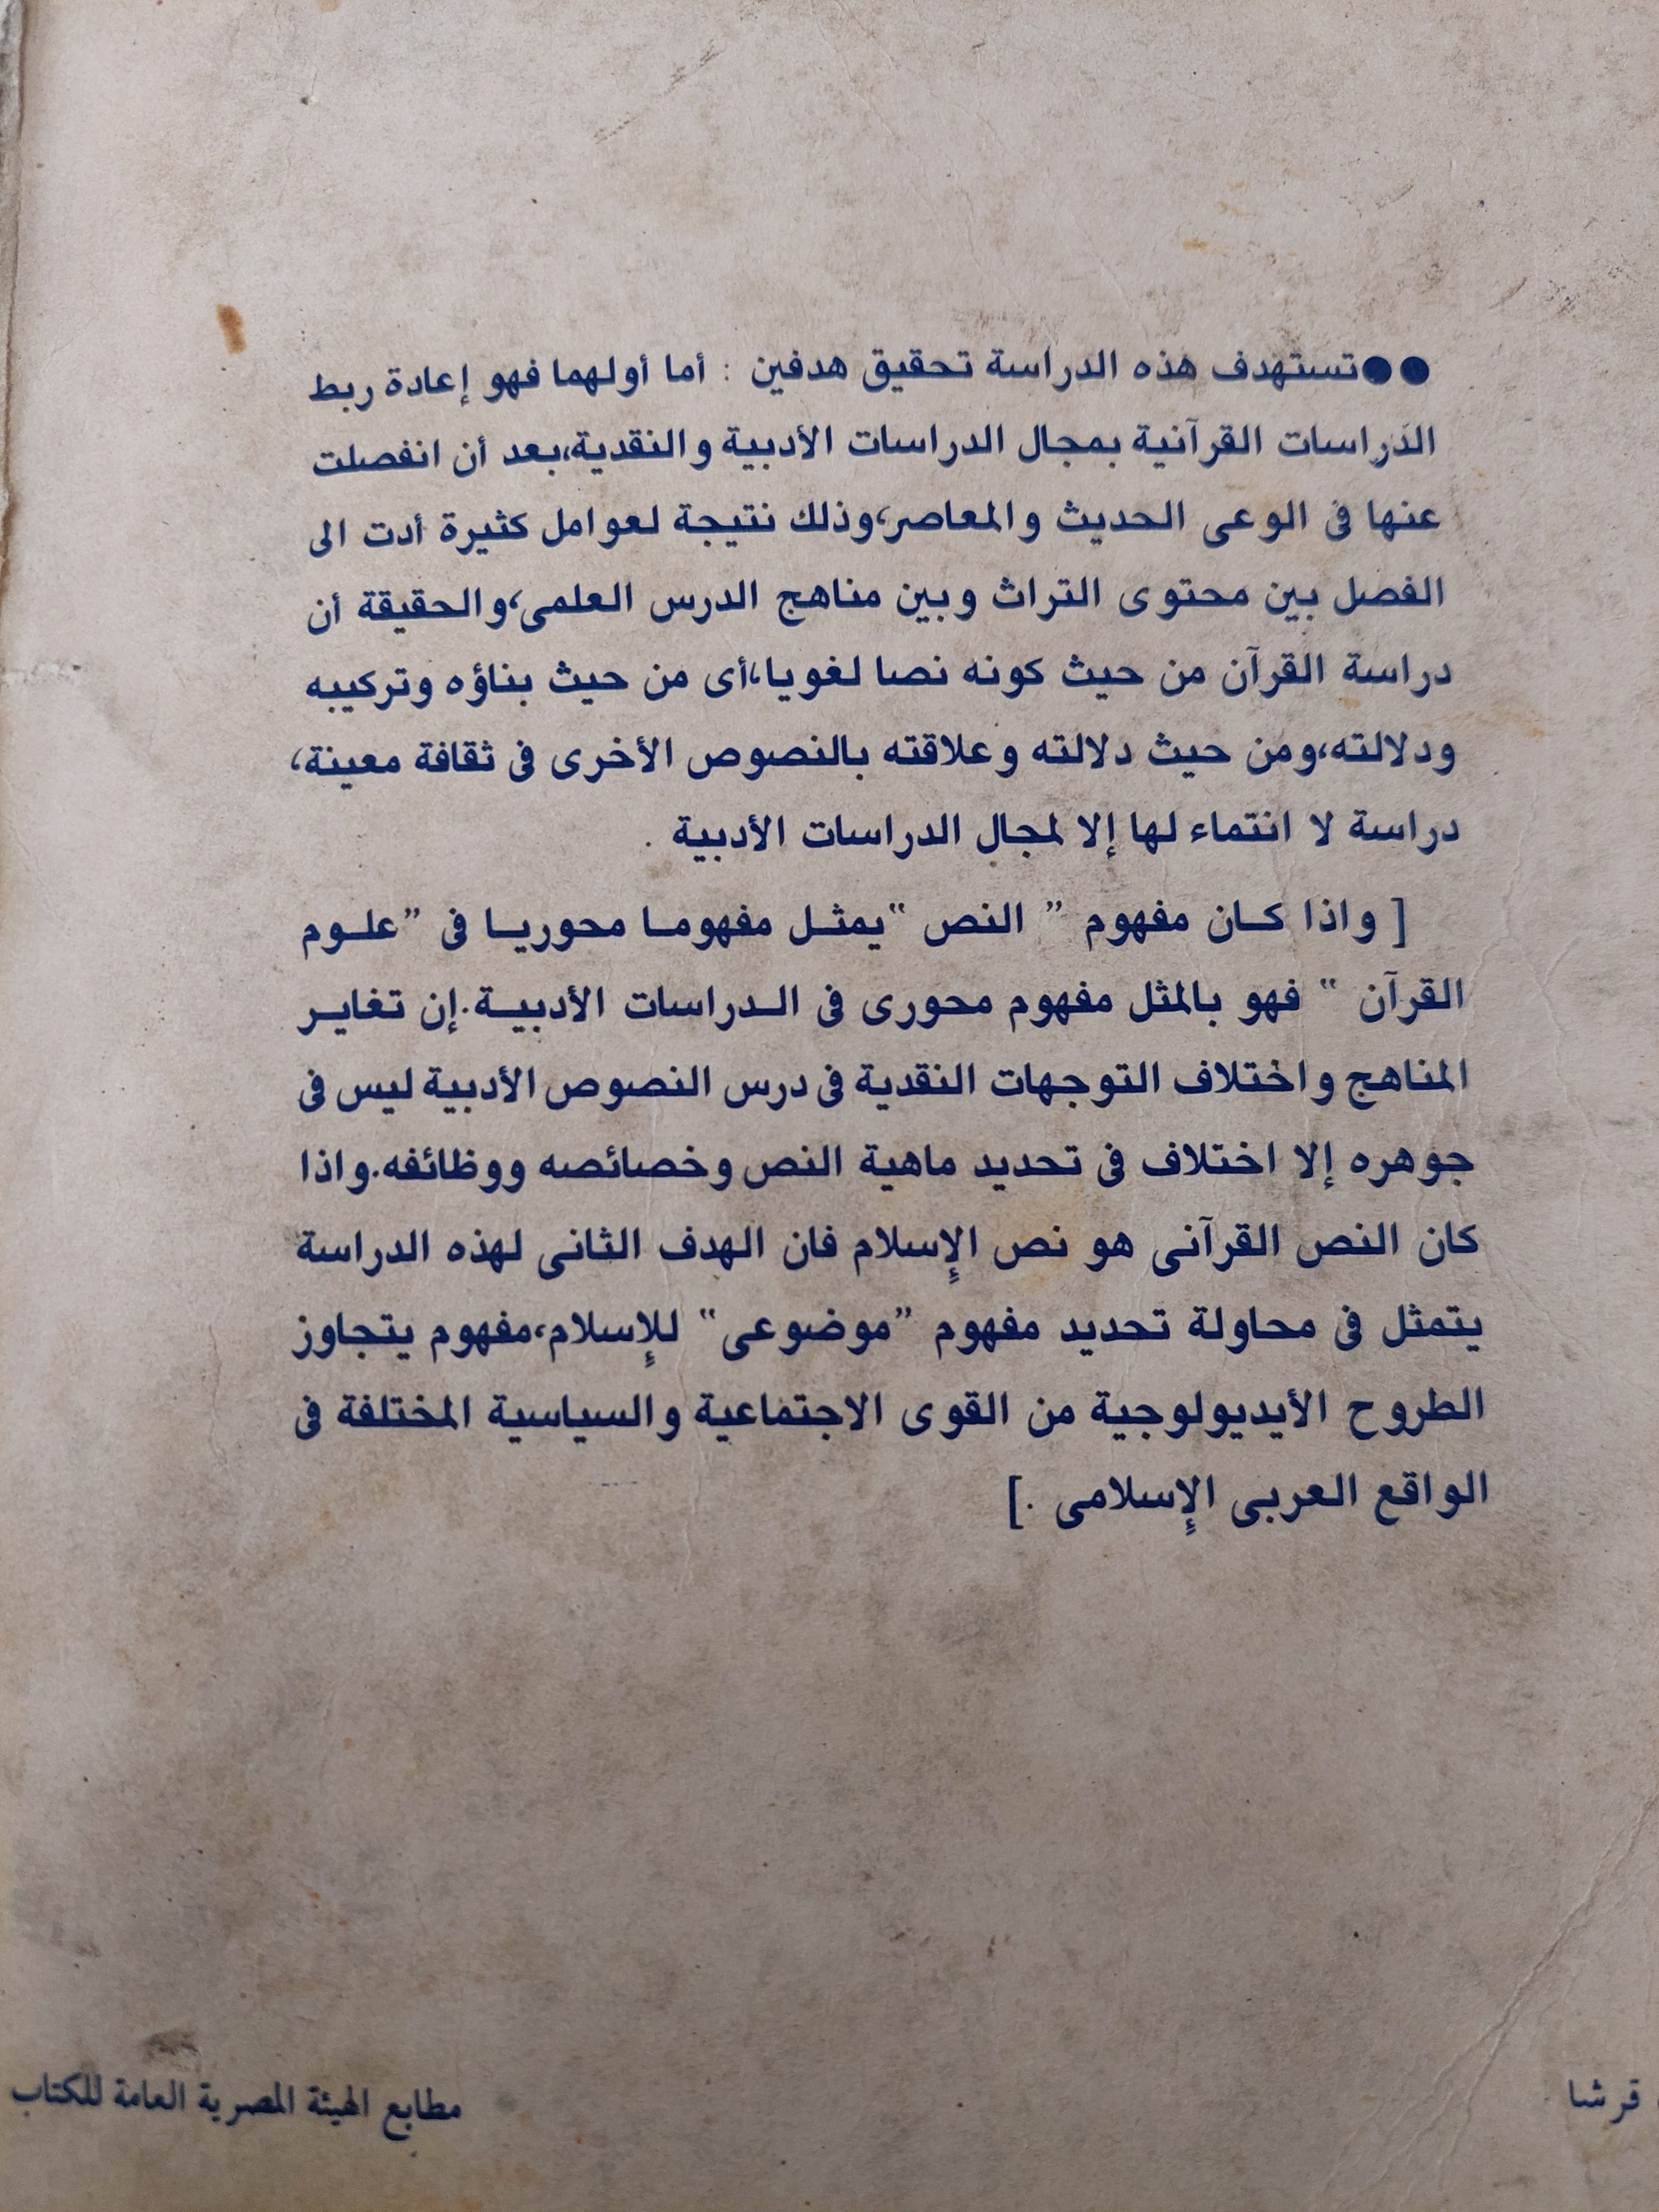 ●●تستهدف هذه الدراسة تحقيق هدفين : أما أولهما فهو إعادة ربط
الدراسات القرآنية بمجال الدراسات الأدبية والنقدية،بعد أن انفصلت
عنها فى الوعى الحديث والمعاصر،وذلك نتيجة لعوامل كثيرة أدت الى
الفصل بين محتوى التراث وبين مناهج الدرس العلمى،والحقيقة أن
دراسة القرآن من حيث كونه نصا لغويا،أى من حيث بناؤه وتركيبه
ودلالته،ومن حيث دلالته وعلاقته بالنصوص الأخرى فى ثقافة معينة،
دراسة لا انتماء لها إلا لمجال الدراسات الأدبية .
[ واذا كـان مفهوم ” النص “يمثـل مفهومـا محوريـا فى ”علـوم
القرآن “ فهو بالمثل مفهوم محورى فى الـدراسات الأدبيـة.إن تغايـر
المناهج واختلاف التوجهات النقدية فى درس النصوص الأدبية ليس فى
جوهره إلا اختلاف فى تحديد ماهية النص وخصائصه ووظائفه.واذا
كان النص القرآنى هو نص الإسلام فان الهدف الثانى لهذه الدراسة
يتمثل فى محاولة تحديد مفهوم ”موضوعى“ للإسلام،مفهوم يتجاوز
الطروح الأيديولوجية من القوى الاجتماعية والسياسية المختلفة فى
الواقع العربى الإسلامى .]
قرشا
مطابع الهيئة المصرية العامة للكتاب